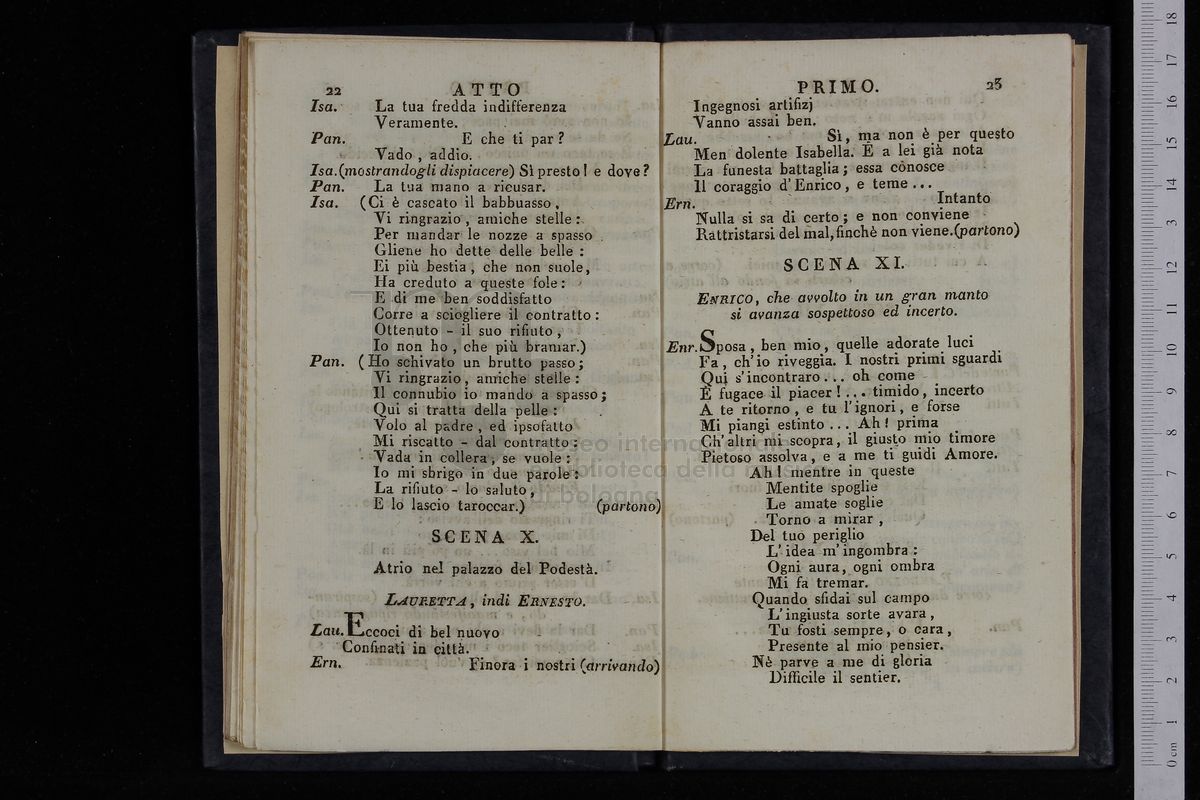 22 ATTO
Isa. La tua fredda indifferenza
Veramente.
Pan. E che ti par?
Vado, addio.
Isa. (mostrandogli dispiacere) Sì presto! e dove?
Pan. La tua mano a ricusar.
Isa. (Ci è cascato il babbuasso,
Vi ringrazio, amiche stelle:
Per mandar le nozze a spasso
Gliene ho dette delle belle:
Ei più bestia, che non suole,
Ha creduto a queste fole:
E di me ben soddisfatto
Corre a sciogliere il contratto:
Ottenuto - il suo rifiuto,
Io non ho, che più bramar.)
Pan. (Ho schivato un brutto passo;
Vi ringrazio, amiche stelle:
Il connubio io mando a spasso;
Qui si tratta della pelle:
Volo al padre, ed ipsofatto
Mi riscatto - dal contratto:
Vada in collera, se vuole:
Io mi sbrigo in due parole:
La rifiuto - lo saluto,
E lo lascio taroccar.) (partono)
SCENA X.
Atrio nel palazzo del Podestà.
LAURETTA, indi ERNESTO.
Lau. Eccoci di bel nuovo
Confinati in città.
Ern. Finora i nostri (arrivando)
PRIMO. 23
Ingegnosi artifizj
Vanno assai ben.
Lau. Sì, ma non è per questo
Men dolente Isabella. E a lei già nota
La funesta battaglia; essa conosce
Il coraggio d'Enrico, e teme...
Ern. Intanto
Nulla si sa di certo; e non conviene
Rattristarsi del mal, finchè non viene. (partono)
SCENA XI.
ENRICO, che avvolto in un gran manto
si avanza sospettoso ed incerto.
Enr. Sposa, ben mio, quelle adorate luci
Fa, ch'io riveggia. I nostri primi sguardi
Qui s'incontraro... oh come
È fugace il piacer!... timido, incerto
A te ritorno, e tu l'ignori, e forse
Mi piangi estinto... Ah! prima
Ch'altri mi scopra, il giusto mio timore
Pietoso assolva, e a me ti guidi Amore.
Ah! mentre in queste
Mentite spoglie
Le amate soglie
Torno a mirar,
Del tuo periglio
L'idea m'ingombra:
Ogni aura, ogni ombra
Mi fa tremar.
Quando sfidai sul campo
L'ingiusta sorte avara,
Tu fosti sempre, o cara,
Presente al mio pensier.
Nè parve a me di gloria
Difficile il sentier.
museo internazionale
e biblioteca della musica
di bologna
0 cm 1 2 3 4 5 6 7 8 9 10 11 12 13 14 15 16 17 18